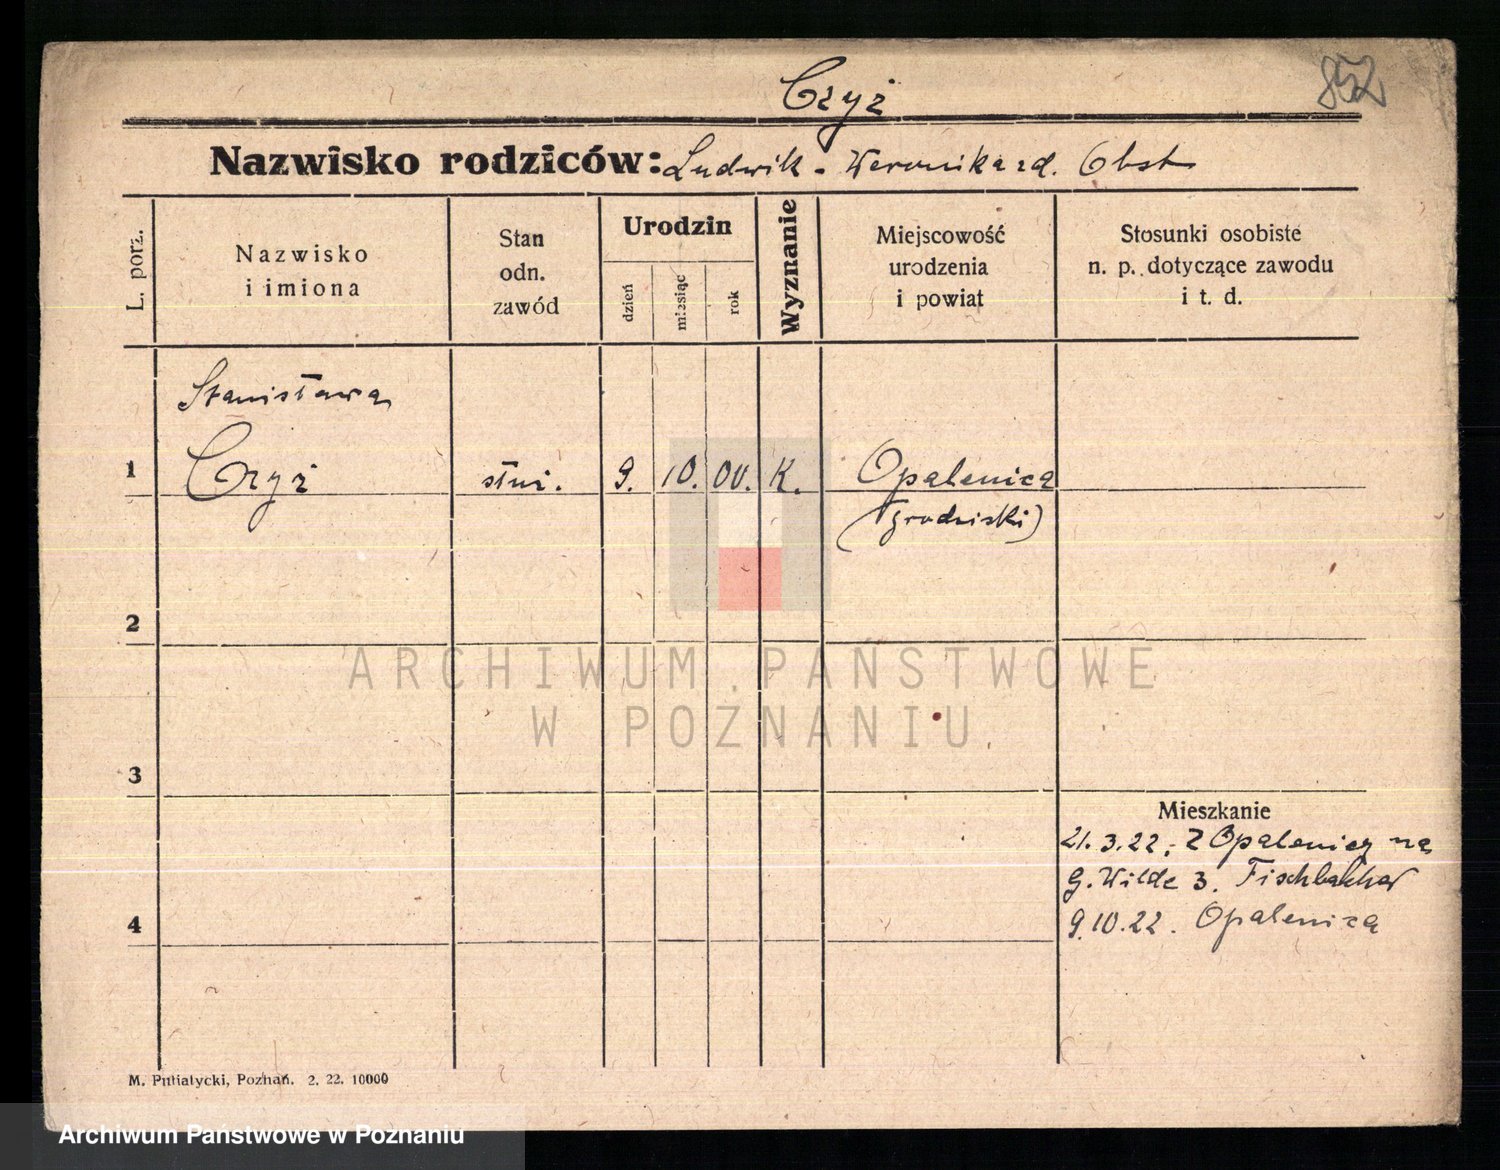 Czyż
852
Nazwisko rodziców: Ludwik - Weronika zd. Obst
L. porz.
Nazwisko
i imiona
Stan
odn.
zawód
Urodzin
dzień
miesiąc
rok
Wyznanie
Miejscowość
urodzenia
i powiat
Stosunki osobiste
n. p. dotyczące zawodu
i t. d.
Stanisława
1 Czyż służ. 9. 10. 00. K. Opalenica
(grodziski)
2
3
Mieszkanie
21.3.22. z Opalenicy na
G. Wilde 3. Fischbakher
4
9.10.22. Opalenica
M. Putiatycki, Poznań. 2. 22. 10000
ARCHIWUM PAŃSTWOWE
W POZNANIU
Archiwum Państwowe w Poznaniu